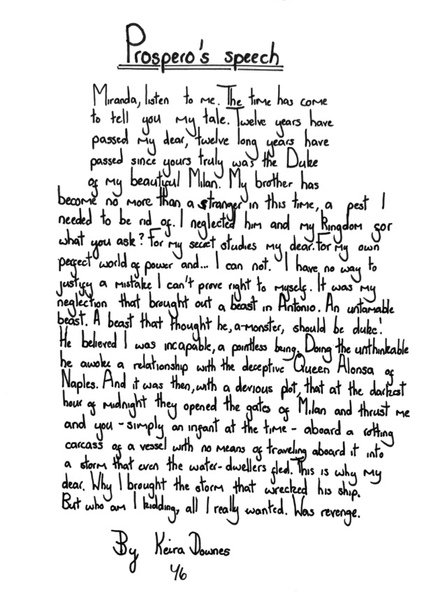 Prospero's speech
Miranda, listen to me. The time has come
to tell you my tale. Twelve years have
passed my dear, twelve long years have
passed since yours truly was the Duke
of my beautiful Milan. My brother has
become no more than a stranger in this time, a pest I
needed to be rid of. I neglected him and my kingdom for
what you ask? For my secret studies my dear. For my own
perfect world of power and... I can not. I have no way to
justify a mistake I can't prove right to myself. It was my
neglection that brought out a beast in Antonio. An untamable
beast. A beast that thought he, a-monster, should be duke!
He believed I was incapable, a pointless being. Doing the unthinkable
he awoke a relationship with the deceptive Queen Alonsa of
Naples. And it was then, with a devious plot, that at the darkest
hour of midnight they opened the gates of Milan and thrust me
and you - simply an infant at the time - aboard a rotting
carcass of a vessel with no means of traveling aboard it into
a storm that even the water-dwellers fled. This is why my
dear. Why I brought the storm that wrecked his ship.
But who am I kidding, all I really wanted. Was revenge.
By Keira Downes